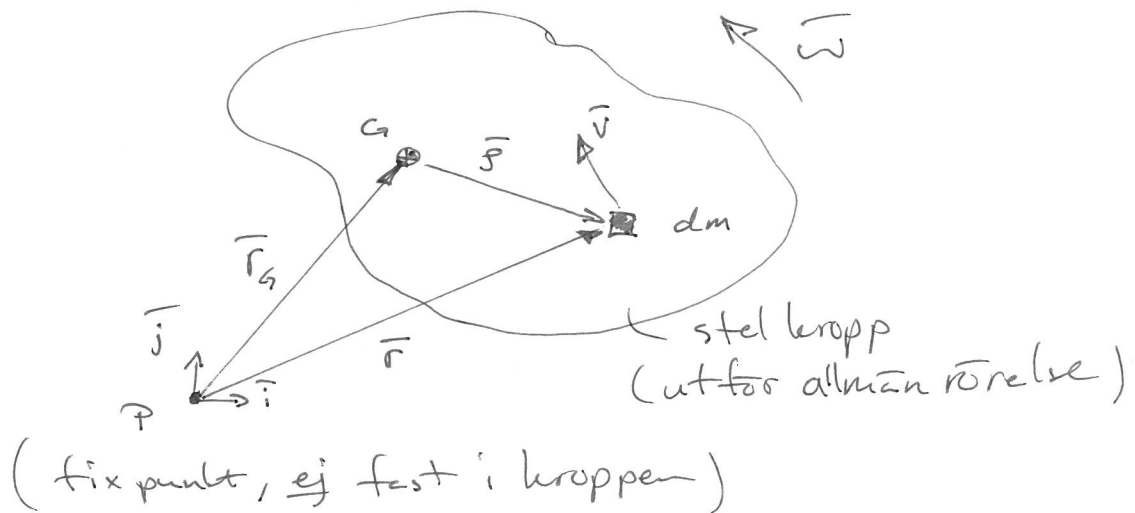 ω̅
G
ρ̅
v̅
dm
r̅_G
r̅
j̅
i̅
P
stel kropp
(utför allmän rörelse)
(fixpunkt, ej fast i kroppen)